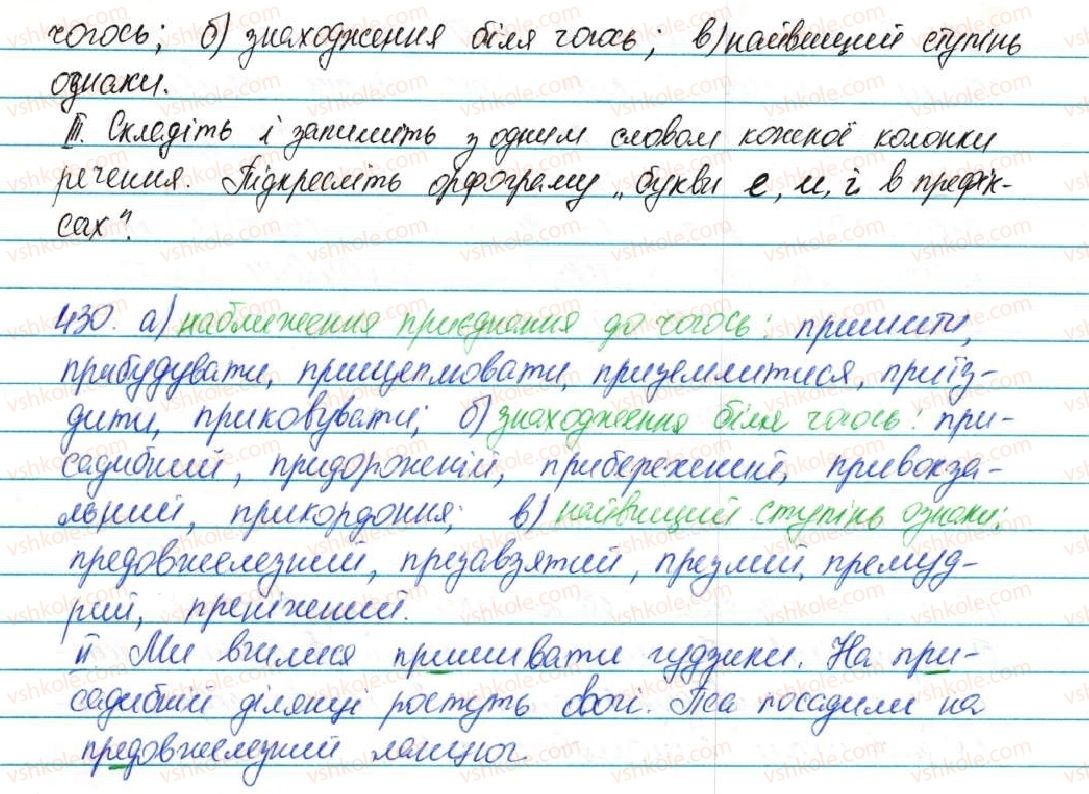 чогось; б) знаходження біля чогось; в) найвищий ступінь
ознаки.
III. Складіть і запишіть з одним словом кожної колонки
речення. Підкресліть орфограму „букви е, и, і в префік-
сах".
430. а) наближення приєднання до чогось: пришити,
прибудувати, прищеплювати, приземлитися, приїз-
дити, приковувати; б) знаходження біля чогось: при-
садибний, придорожній, прибережний, привокза-
льний, прикордоння; в) найвищий ступінь ознаки:
предовжелезний, презавзятий, презлий, премуд-
рий, преніжний.
II Ми вчилися пришивати гудзики. На при-
садибній ділянці ростуть овочі. Пса посадили на
предовжелезний ланцюг.
vshkole.com